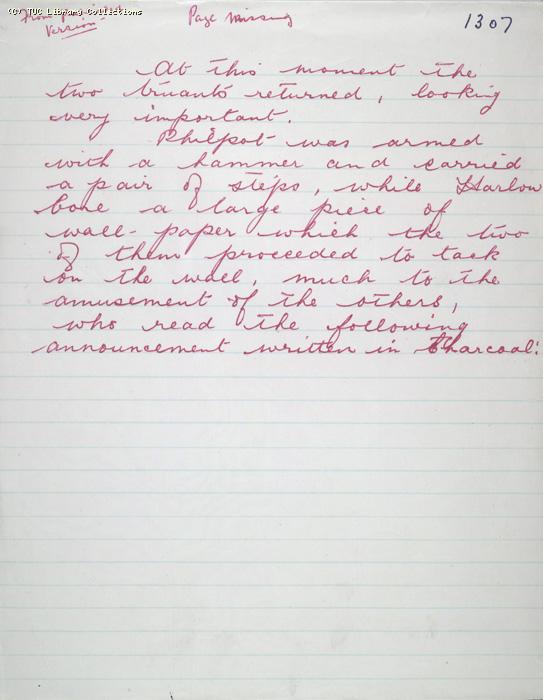 (C) TUC Library Collections
From printed
Version
Page Missing
1307
At this moment the
two truants returned, looking
very important.
Philpot was armed
with a hammer and carried
a pair of steps, while Harlow
bore a large piece of
wall-paper which the two
of them proceeded to tack
on the wall, much to the
amusement of the others,
who read the following
announcement written in charcoal: